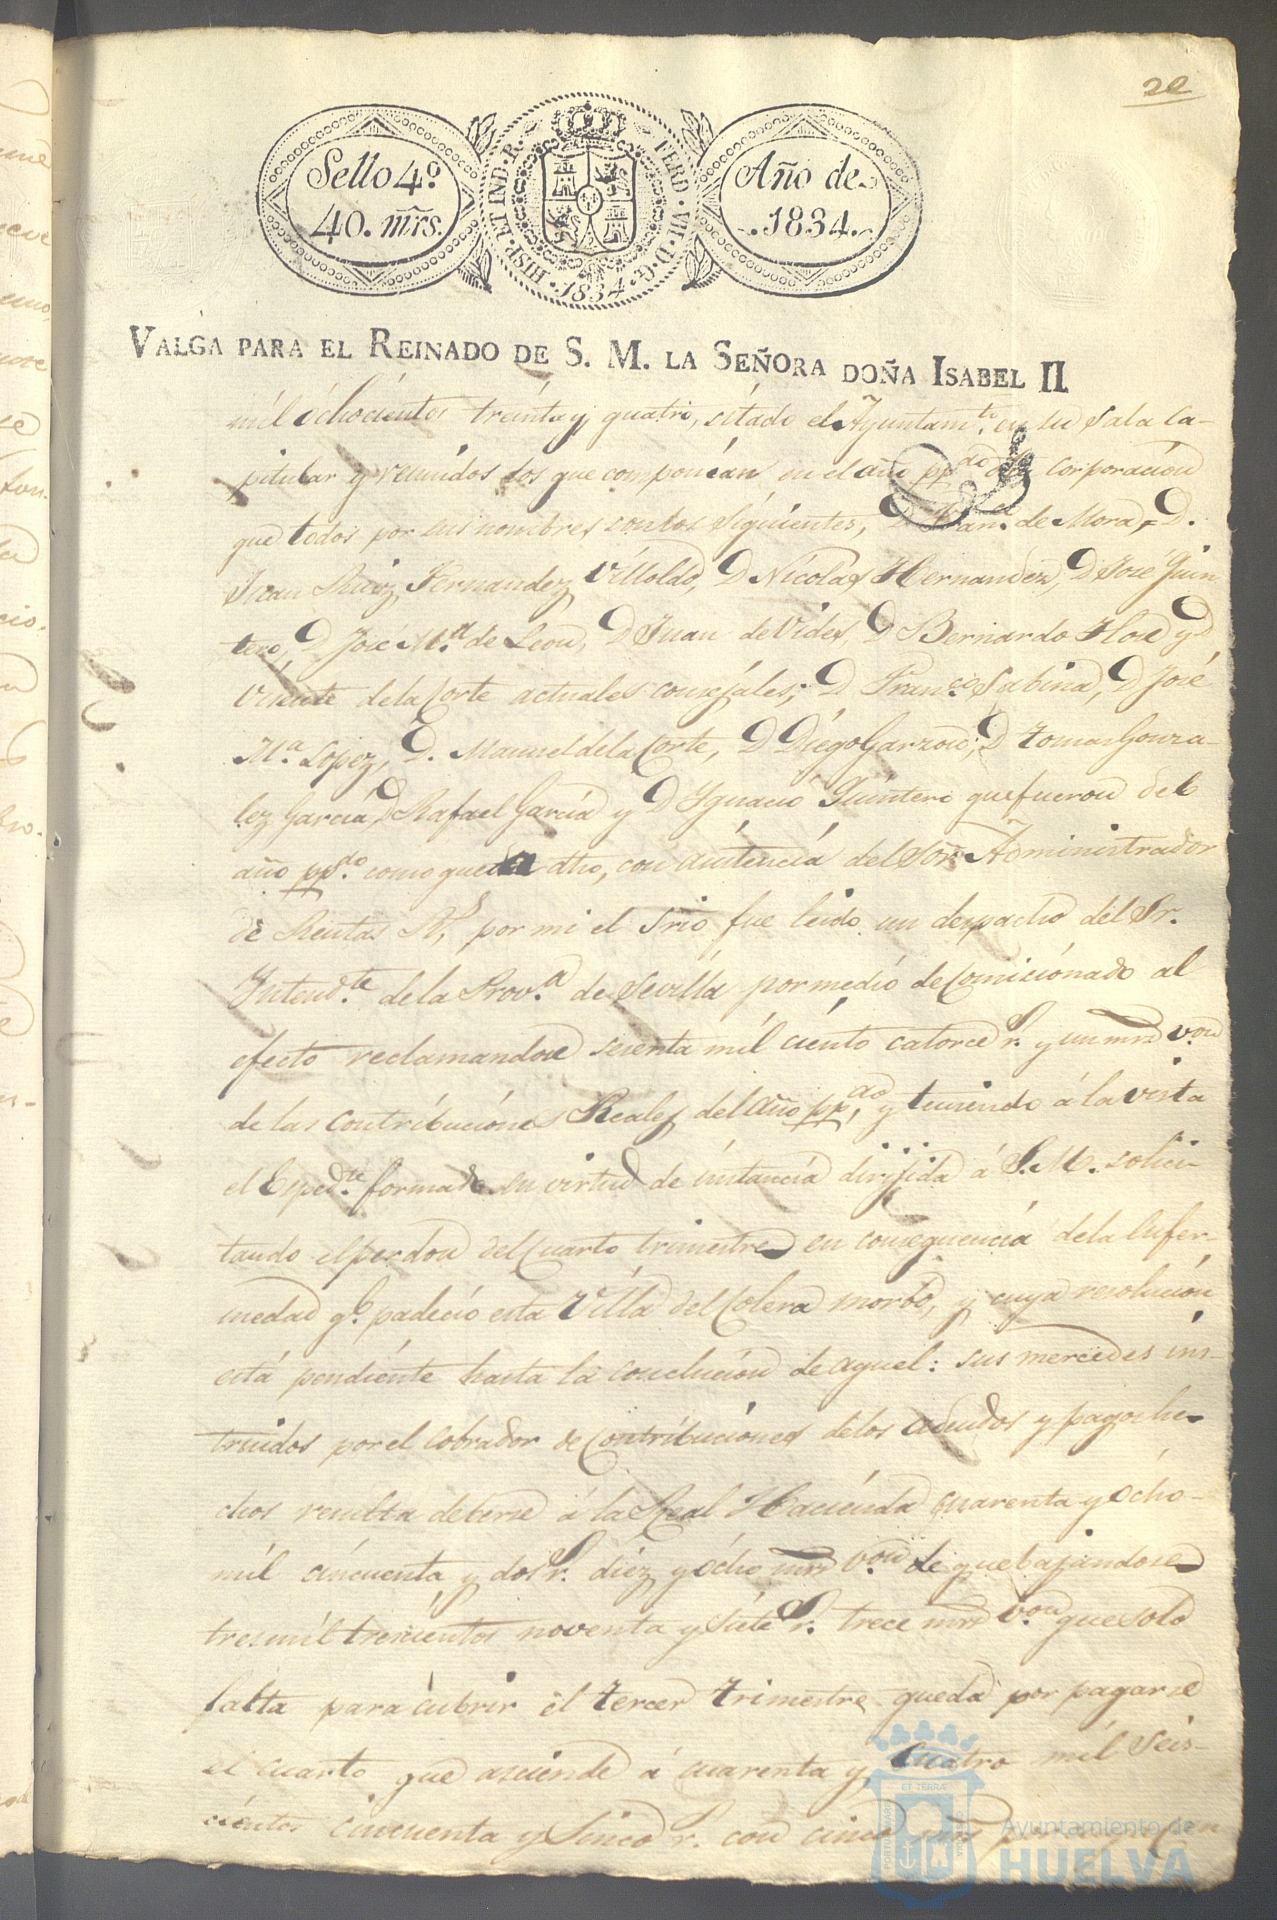 22
Sello 4º
40. mrs.
HISP. ET IND. R.
FERD. VII. D. G.
1834
Año de
1834.
VALGA PARA EL REINADO DE S. M. LA SEÑORA DOÑA ISABEL II
mil ochocientos treinta y quatro, sitado el Ayuntamto. en su Sala Ca-
pitular y reunidos los que componian en el año ppdo. dha corporacion
que todos por sus nombres son los siguientes, D Franco. de Mora, D.
Juan Ruiz Fernandez Villoldo, D Nicolas Hernandez, D José Quin
tero, D José Mª de Leon, D Juan de Vides, D Bernardo Floe y D
Vicente de la Corte actuales concejales; D Franco. Sabina, D José
Mª Lopez, D. Manuel de la Corte, D Diego Garzon, D Tomas Gonza-
lez Garcia, D Rafael Garcia y D Ygnacio Quintero que fueron del
año ppdo. como queda dho, con asistencia del Sor. Administrador
de Rentas Rs, por mi el Srio fue leido un despacho del Sr.
Yntendte. de la Prova. de Sevilla por medio de Comicionado al
efecto reclamandose sesenta mil ciento catorce rs. y un mrs von
de las contribuciones Reales del año ppdo, y teniendo á la vista
el Espedte. formado en virtud de instancia dirijida á S. M. solici-
tando el perdon del Cuarto trimestre en consequencia de la Enfer-
medad qe. padecio esta Villa del Colera morbo, y cuya resolucion
está pendiente hasta la conclucion de aquel: sus mercedes ins-
truidos por el Cobrador de Contribuciones de los adeudos y pagos he-
chos resulta deberse á la Real Hacienda quarenta y ocho
mil cincuenta y dos rs. diez y ocho mrs von de que bajandose
tres mil trescientos noventa y siete rs. trece mrs von que solo
falta para cubrir el tercer trimestre queda por pagarse
el cuarto que asciende á cuarenta y cuatro mil seis-
cientos cincuenta y Sinco rs. con cinco mrs
PORTUS MARIS
ET TERRÆ
CUSTODIA
Ayuntamiento de
HUELVA